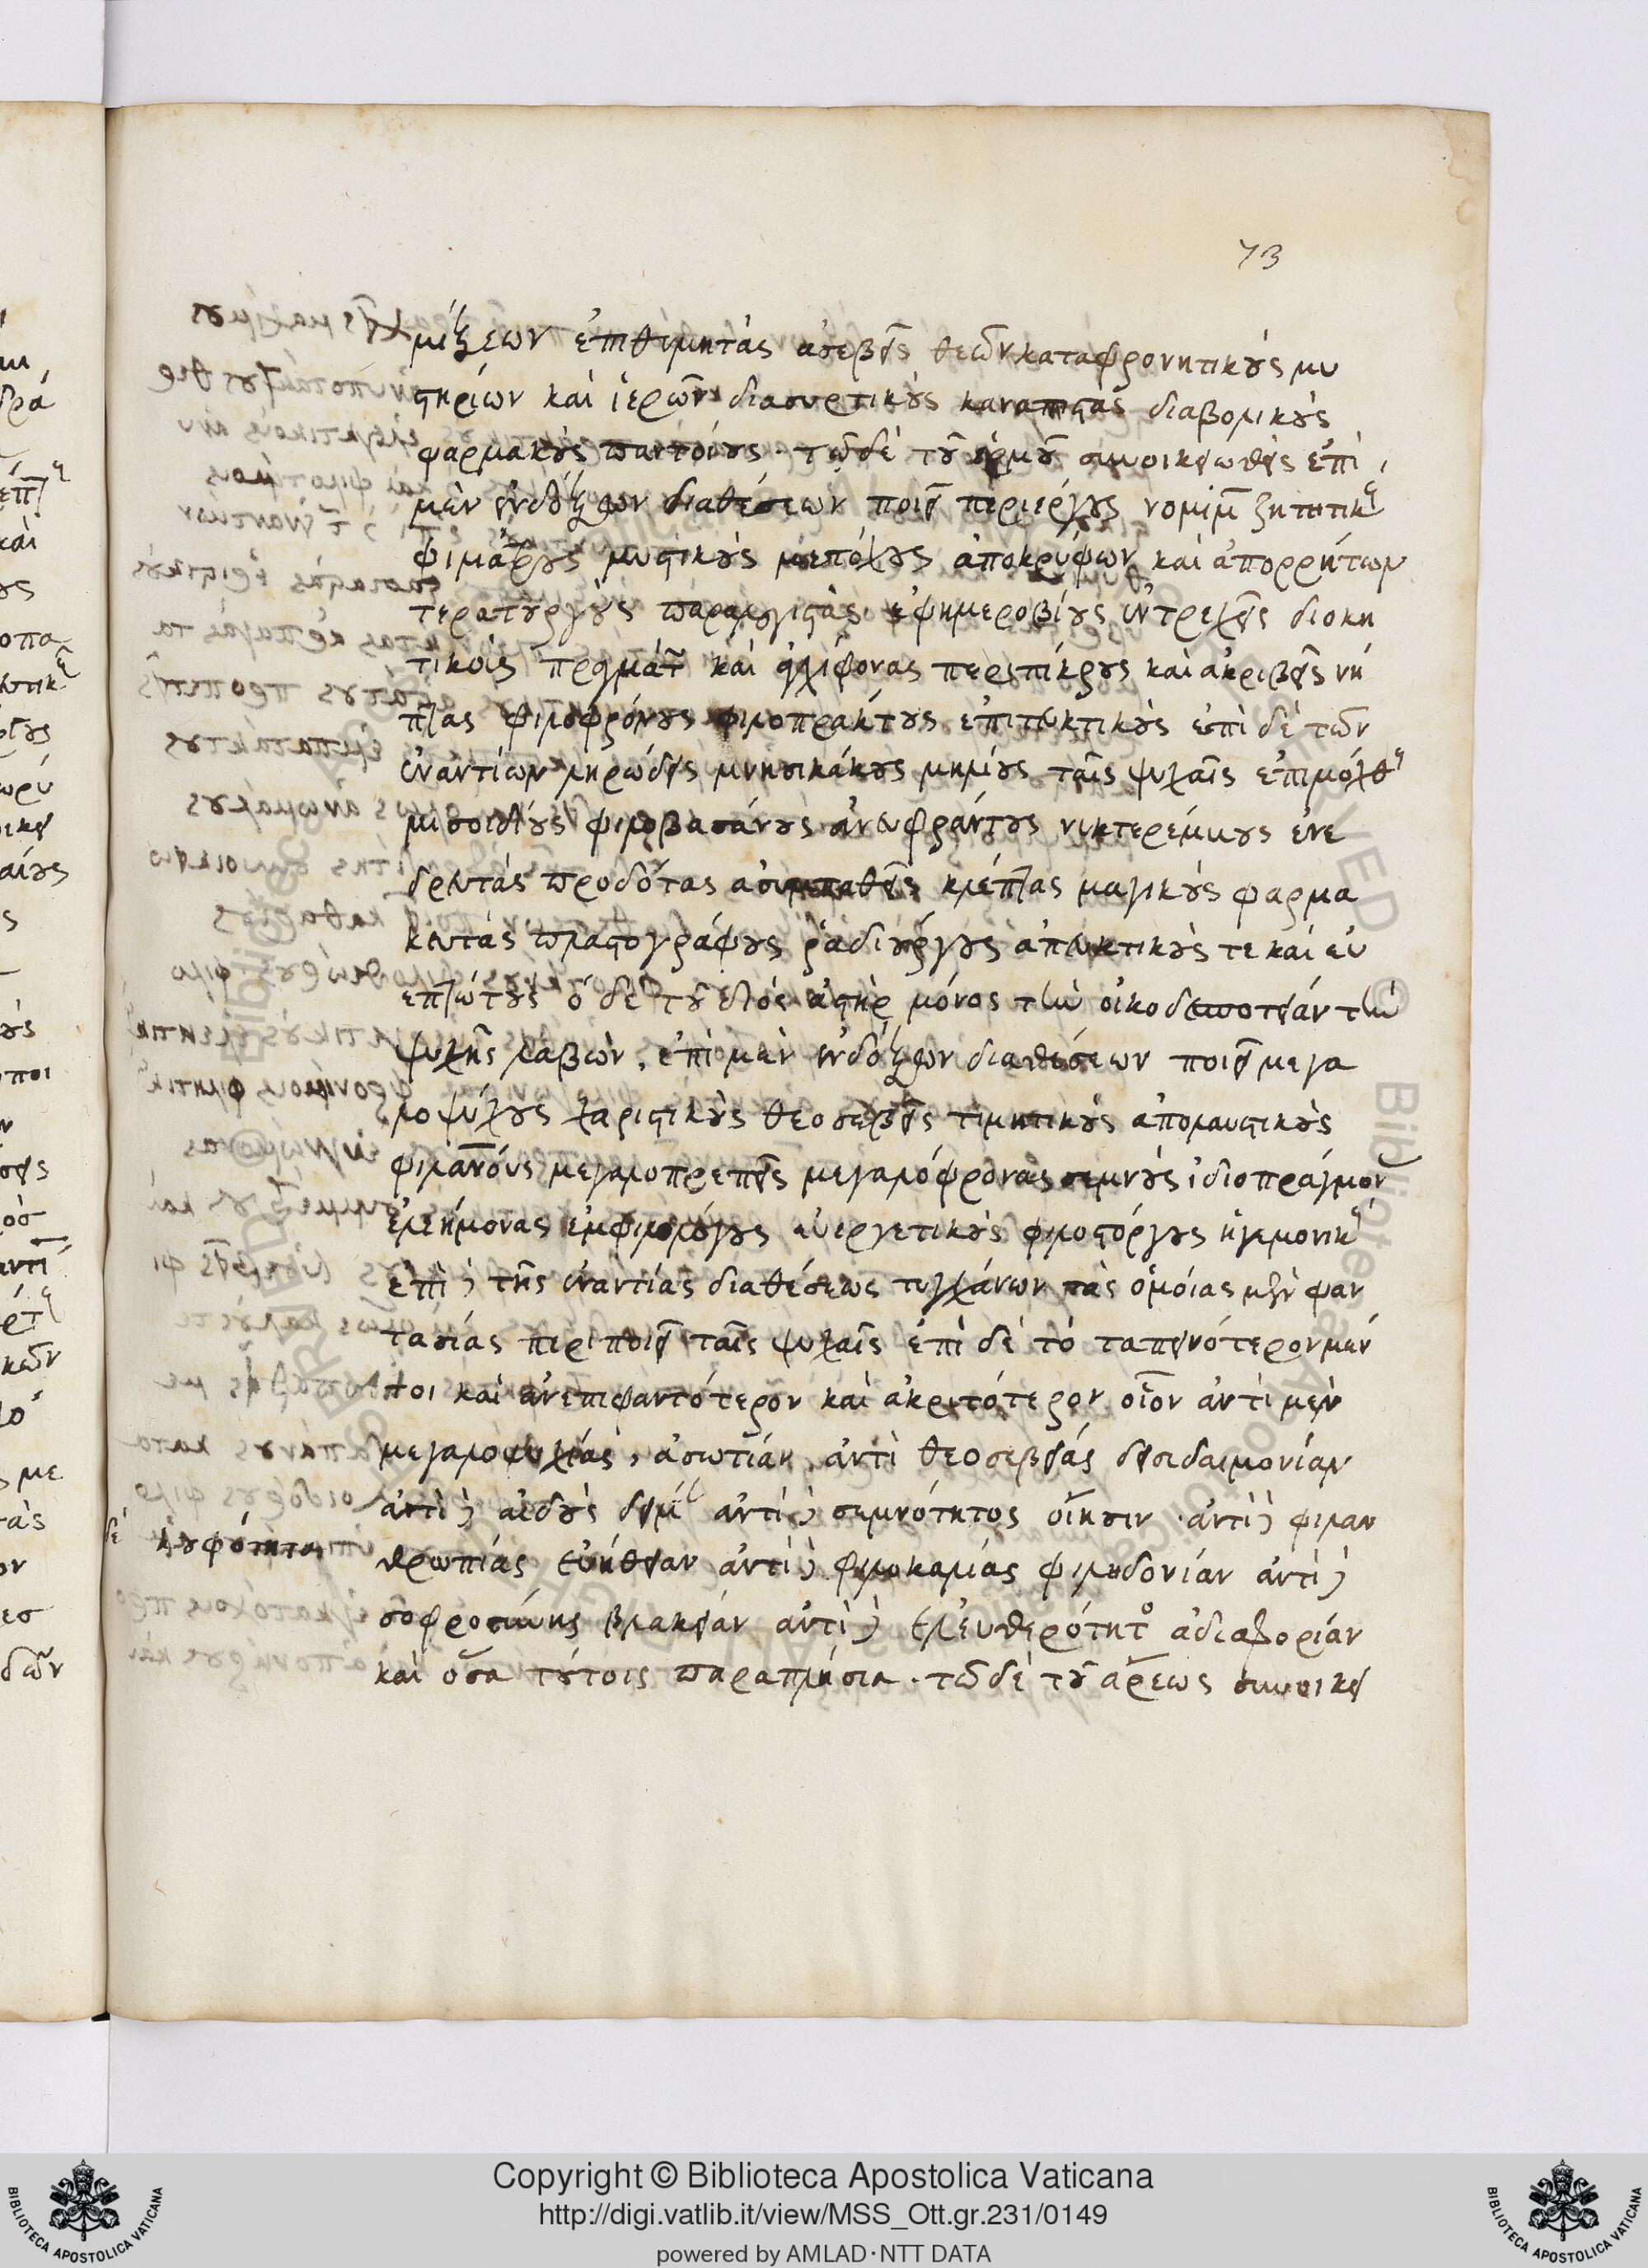 73
μίξεων ἐπιθυμητὰς ἀσεβεῖς θεῶν καταφρονητικοὺς μυ
στηρίων καὶ ἱερῶν διασυρτικοὺς καναπιστὰς διαβολικοὺς
φαρμακοὺς παντοίους. τῶ δὲ τοῦ ἑρμοῦ συνοικειωθεὶς ἐπὶ
μὲν ἐνδόξων διαθέσεων ποιεῖ περιέργους νομίμ ζητητικ
φιμάτρους μυστικοὺς μετόχους ἀποκρύφων καὶ ἀπορρήτων
τερατουργοὺς παραλογιστὰς ἐφημεροβίους ἐντρεχεῖς διοκη
τικοὺς πραγμάτ καὶ ἀγχίφονας περιπίκρους καὶ ἀκριβεῖς νή
πτας φιλοφρόνους φιλοπράκτους ἐπιτευκτικοὺς ἐπὶ δὲ τῶν
ἐναντίων ληρώδεις μνησικάκους μηλίους ταῖς ψυχαῖς ἐπιμόχθ
μισοιδίους φιλοβασάνους ἀνευφράντους νυκτερέμμους ἐνε
δρευτὰς προδότας ἀσυμπαθεῖς κλέπτας μαγικοὺς φαρμα
κευτὰς πλαστογράφους ῥαδιούργους ἀπευκτικοὺς τε καὶ εὐ
επτώτους ὁ δὲ τοῦ διὸς ἀστὴρ μόνος τὴν οἰκοδεσποτείαν τὴν
ψυχῆς λαβὼν, ἐπὶ μὲν ἐνδόξων διαθέσεων ποιεῖ μεγα
λοψύχους χαριστικοὺς θεοσεβεῖς τιμητικοὺς ἀπολαυστικοὺς
φιλανους μεγαλοπρεπεῖς μεγαλόφρονας σεμνοὺς ἰδιοπράγμον
ἐλεήμονας ἐμφιλολόγους εὐεργετικοὺς φιλοστόργους ἡγεμονικ
ἐπὶ δὲ τῆς ἐναντίας διαθέσεως τυγχάνων τὰς ὁμοίας μὲν φαν
τασίας περιποιεῖ ταῖς ψυχαῖς ἐπὶ δὲ τὸ ταπεινότερον μέν
τοι καὶ ἀνεπιφαντότερον καὶ ἀκριτότερον οἷον ἀντὶ μὲν
μεγαλοψυχίας, ἀσωτίαν, ἀντὶ θεοσεβείας δεισιδαιμονίαν
ἀντὶ δὲ αἰδοῦς δειλί ἀντὶ δὲ σεμνότητος οἴησιν. ἀντὶ δὲ φιλαν
θρωπίας εὐήθειαν ἀντὶ δὲ φιλοκαλίας φιληδονίαν ἀντὶ δὲ
δὲ κουφότητα
σοφροσύνης βλακείαν ἀντὶ δὲ ἐλευθερότητ ἀδιαφορίαν
καὶ ὅσα τούτοις παραπλήσια. τῶ δὲ τοῦ ἄρεως συνοικει
Copyright © Biblioteca Apostolica Vaticana
http://digi.vatlib.it/view/MSS_Ott.gr.231/0149
powered by AMLAD·NTT DATA